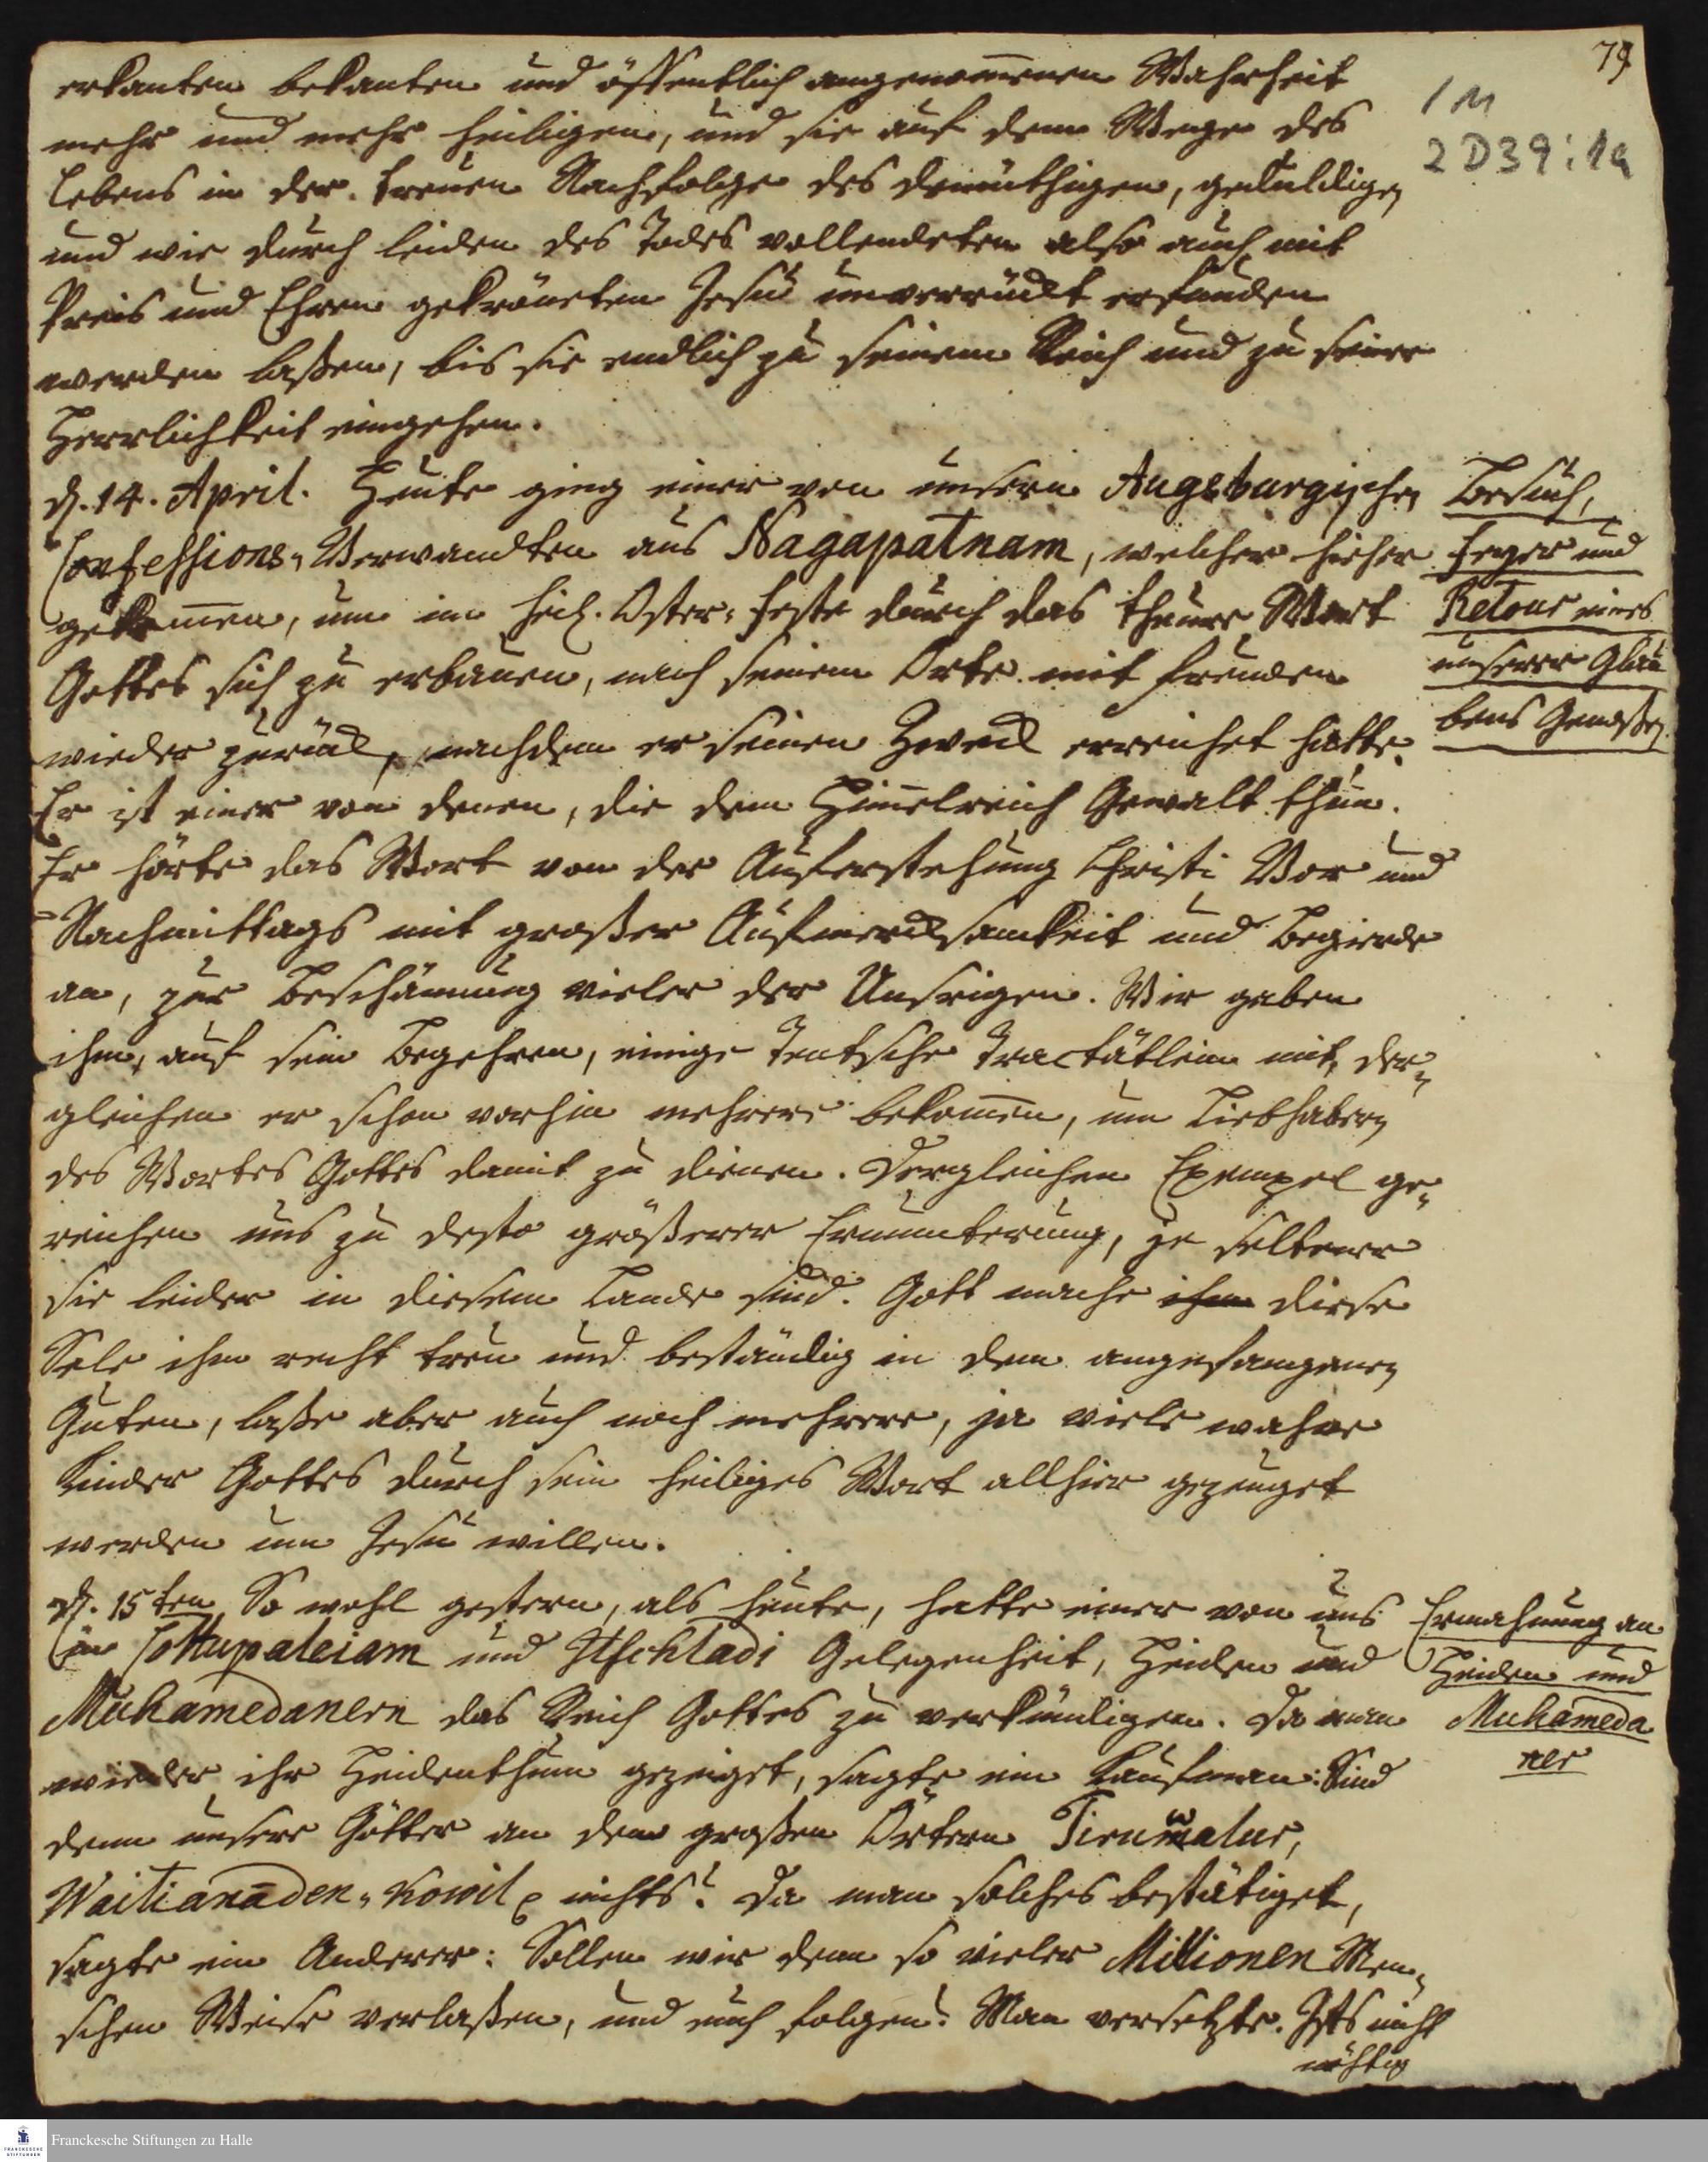 79
1 M
2 D39:1a
erkanten bekanten und öffentlich angenom̄enen Wahrheit
mehr und mehr heiligen, und sie auf dem Wege des
Lebens in der treuen Nachfolge des demüthigen, gedultigen
und wie durch Leiden des Todes vollendeten also auch mit
Preis und Ehren gekröneten Jesu unverrückt erfunden
werden laßen, bis sie endlich zu seinem Reich und zu seiner
Herrlichkeit eingehen.
d. 14. April. Heute ging einer von unsern Augsburgischen
Confessions-Verwandten aus Nagapatnam, welcher hieher
gekom̄en, um im heil. Oster-Feste durch das theure Wort
Gottes sich zu erbauen, nach seinem Orte mit Freuden
wieder zurück, nachdem er seinen Zweck erreichet hatte.
Er ist einer von denen, die dem Him̄elreich Gewalt thun.
Er hörte das Wort von der Auferstehung Christi Vor und
Nachmittags mit großer Aufmercksamkeit und Begierde
an, zur Beschämung vieler der Unsrigen. Wir gaben
ihm, auf sein Begehren, einige Teutsche Tractätlein mit, der-
gleichen er schon vorhin mehrere bekom̄en, um Liebhabern
des Wortes Gottes damit zu dienen. Dergleichen Exempel ge-
reichen uns zu desto größerer Ermunterung, je seltener
sie leider in diesem Lande sind. Gott mache ihm diese
Sele ihm recht treu und beständig in dem angefangenen
Guten, laße aber auch noch mehrere, ja viele wahre
Kinder Gottes durch sein heiliges Wort allhier gezeuget
werden um Jesu willen.
Besuch,
Feyer und
Retour eines
unserer Glau
bens Genoßen.
d. 15ten So wohl gestern, als heute, hatte einer von uns
in Cottupaleiam und Itschladi Gelegenheit, Heiden und
Muhamedanern das Reich Gottes zu verkündigen. Da man
wieder ihr Heidenthum gezeiget, sagte ein Kaufman: Sind
denn unsere Götter an den großen Örtern Tiruwalur,
Waitianāden-Kowil nichts? Da man solches bestätiget,
sagte ein Anderer: Sollen wir denn so vieler Millionen Men-
schen Weise verlaßen, und euch folgen? Man versetzte. Ists nicht
nöhtig
Ermahnung an
Heiden und
Muhameda
ner
Franckesche Stiftungen zu Halle